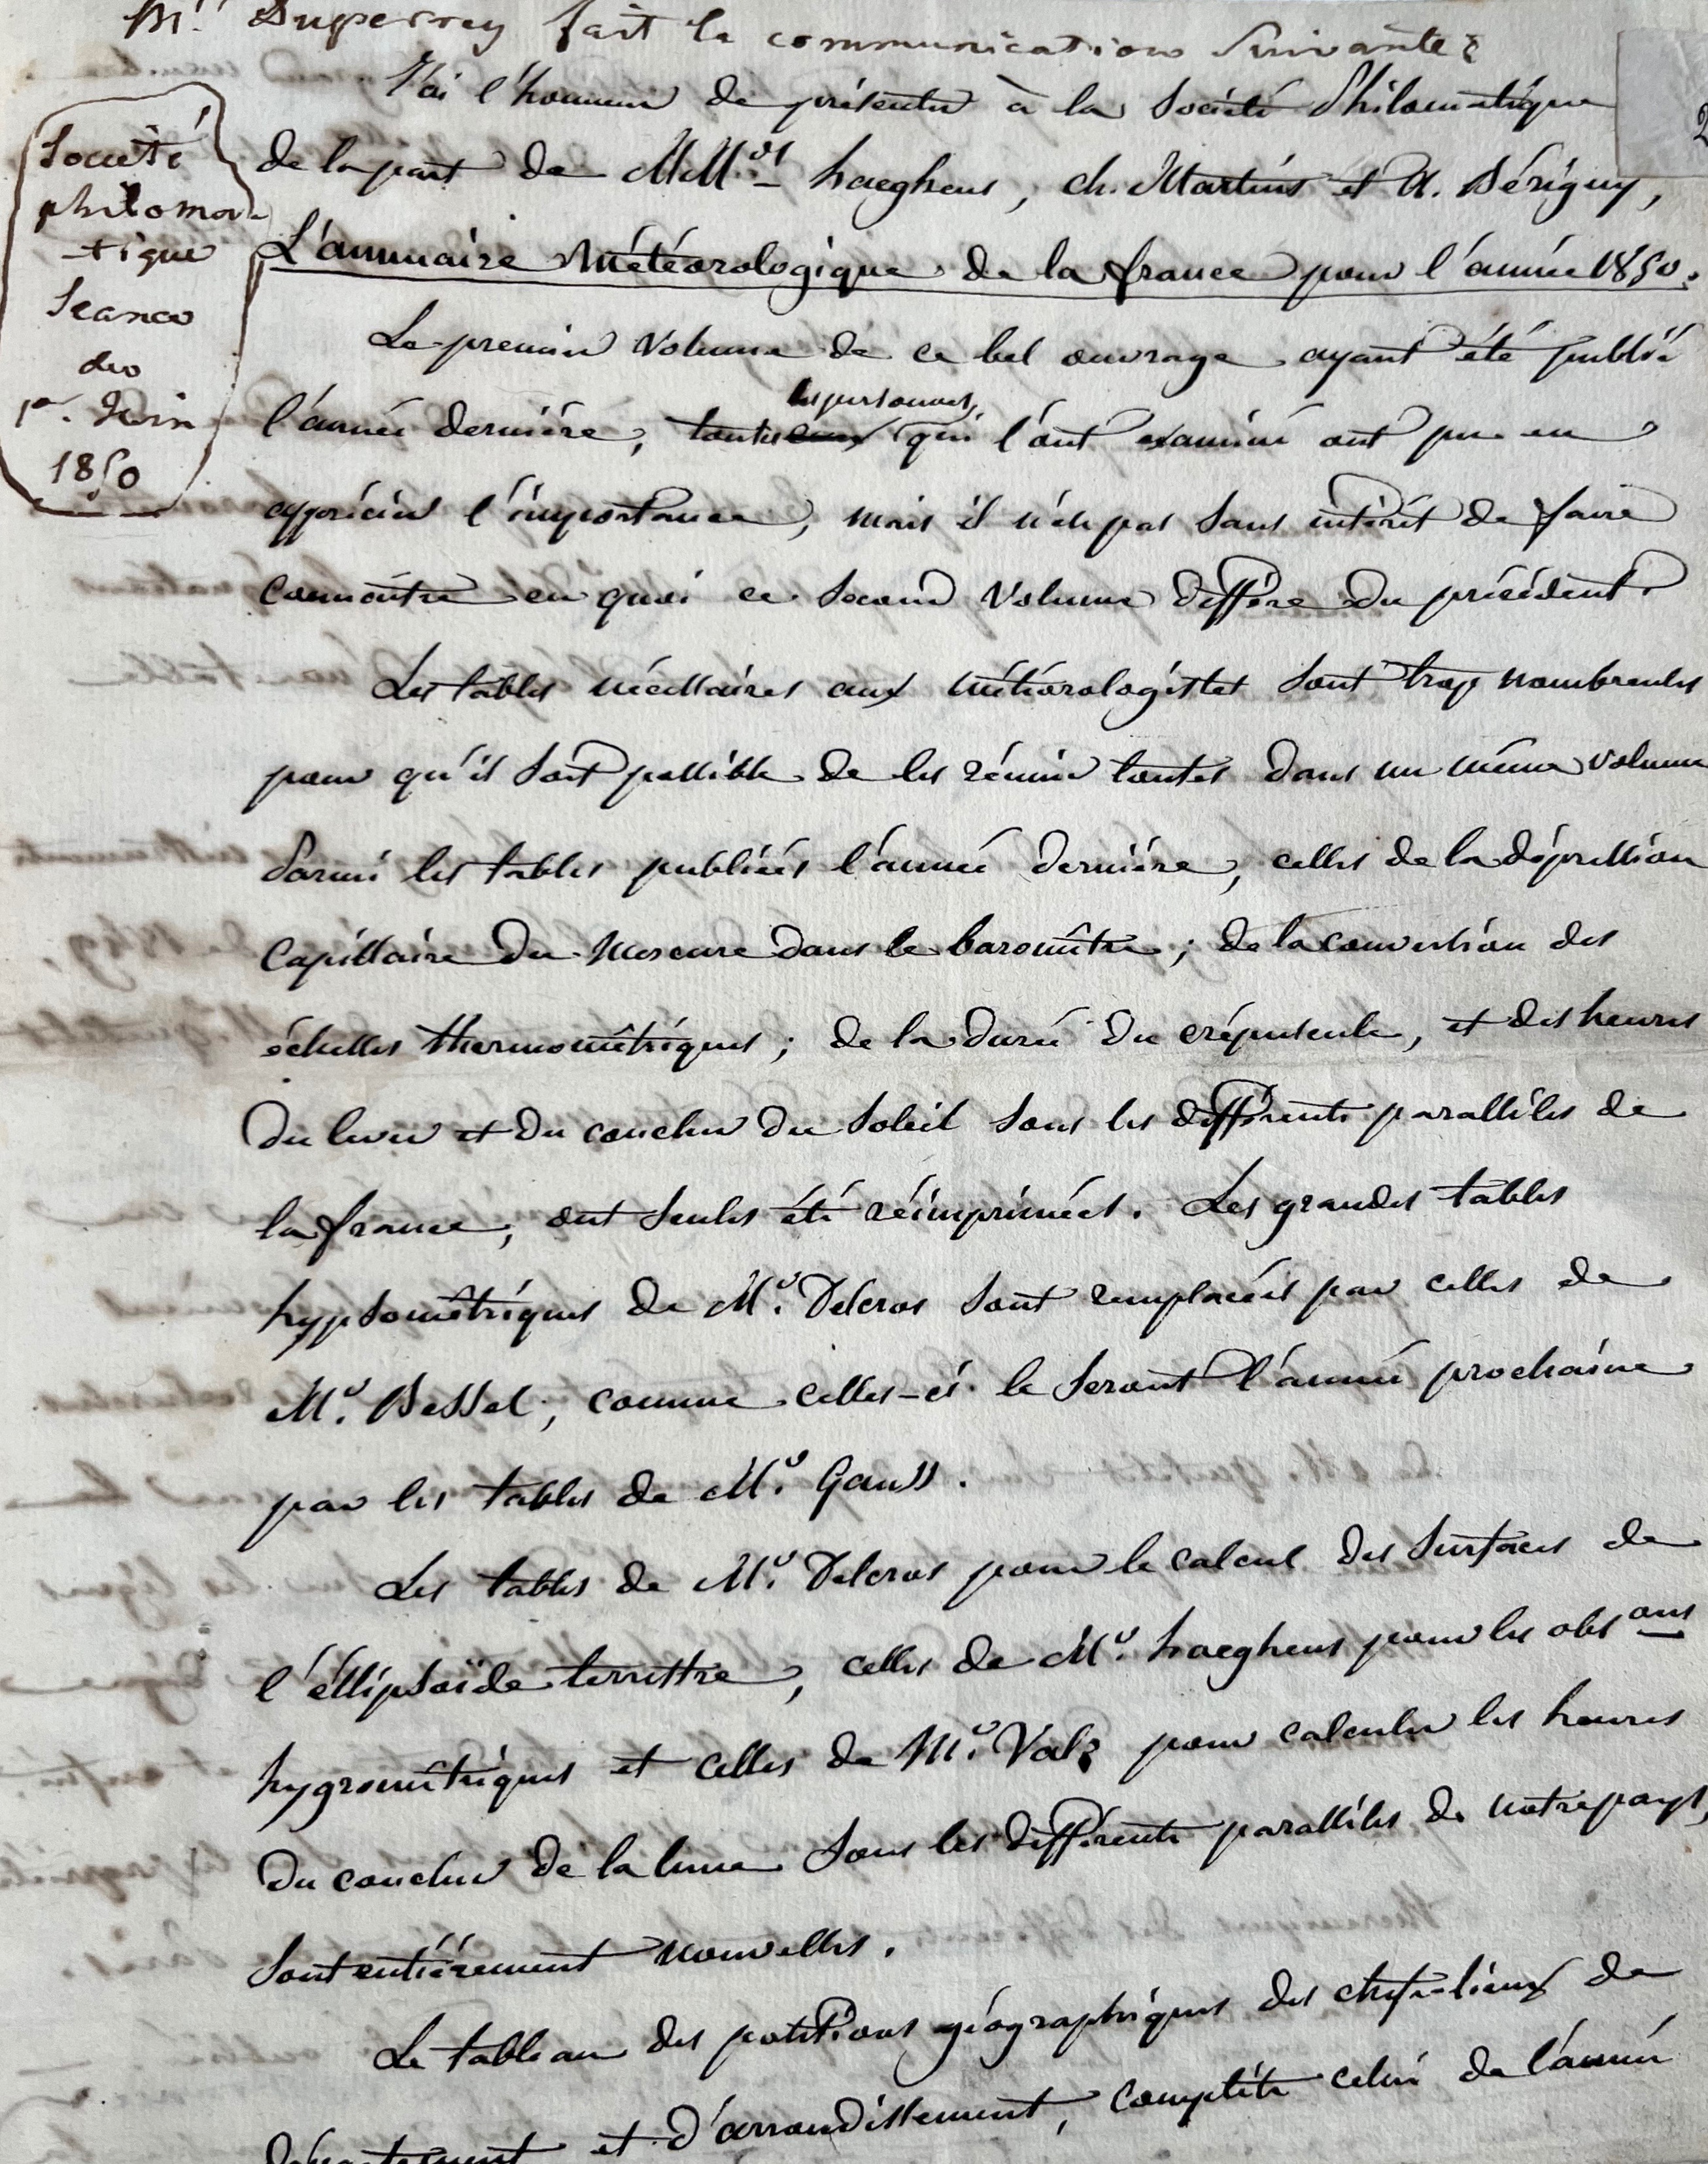 Mr. Duperrey fait la communication suivante :
J'ai l'honneur de présenter à la Société Philomatique
de la part de MM.rs haeghens, ch. Martins et A. Bérigny,
L'annuaire Météorologique de la france pour l'année 1850.
Société
philoma-
-tique
Séance
du
1er. Juin
1850
Le premier volume de ce bel ouvrage ayant été publié
les personnes
l'année dernière, toutes ceux qui l'ont examiné ont pu en
apprécier l'importance, mais il n'est pas sans intérêt de faire
connaître en quoi ce second volume diffère du précédent.
Les tables nécessaires aux météorologistes sont trop nombreuses
pour qu'il soit possible de les réunir toutes dans un même volume
Parmi les tables publiées l'année dernière, celles de la dépression
Capillaire du Mercure dans le baromètre ; de la conversion des
échelles thermométriques ; de la durée du crépuscule, et des heures
du lever et du coucher du Soleil sous les différents parallèles de
la france, ont seules été réimprimées. Les grandes tables
hypsométriques de Mr. Delcros sont remplacées par celles de
Mr. Bessel, comme celles-ci le seront l'année prochaine
par les tables de Mr. Gauss.
Les tables de Mr. Delcros pour le calcul des surfaces de
l'éllipsoïde terrestre, celles de Mr. haeghens pour les obsons
hygrométriques et celles de Mr. Valz pour calculer les heures
du coucher de la lune sous les différents parallèles de notre pays,
sont entièrement nouvelles.
Le tableau des positions géographiques des chefs-lieux de
département et d'arrondissement, complète celui de l'année